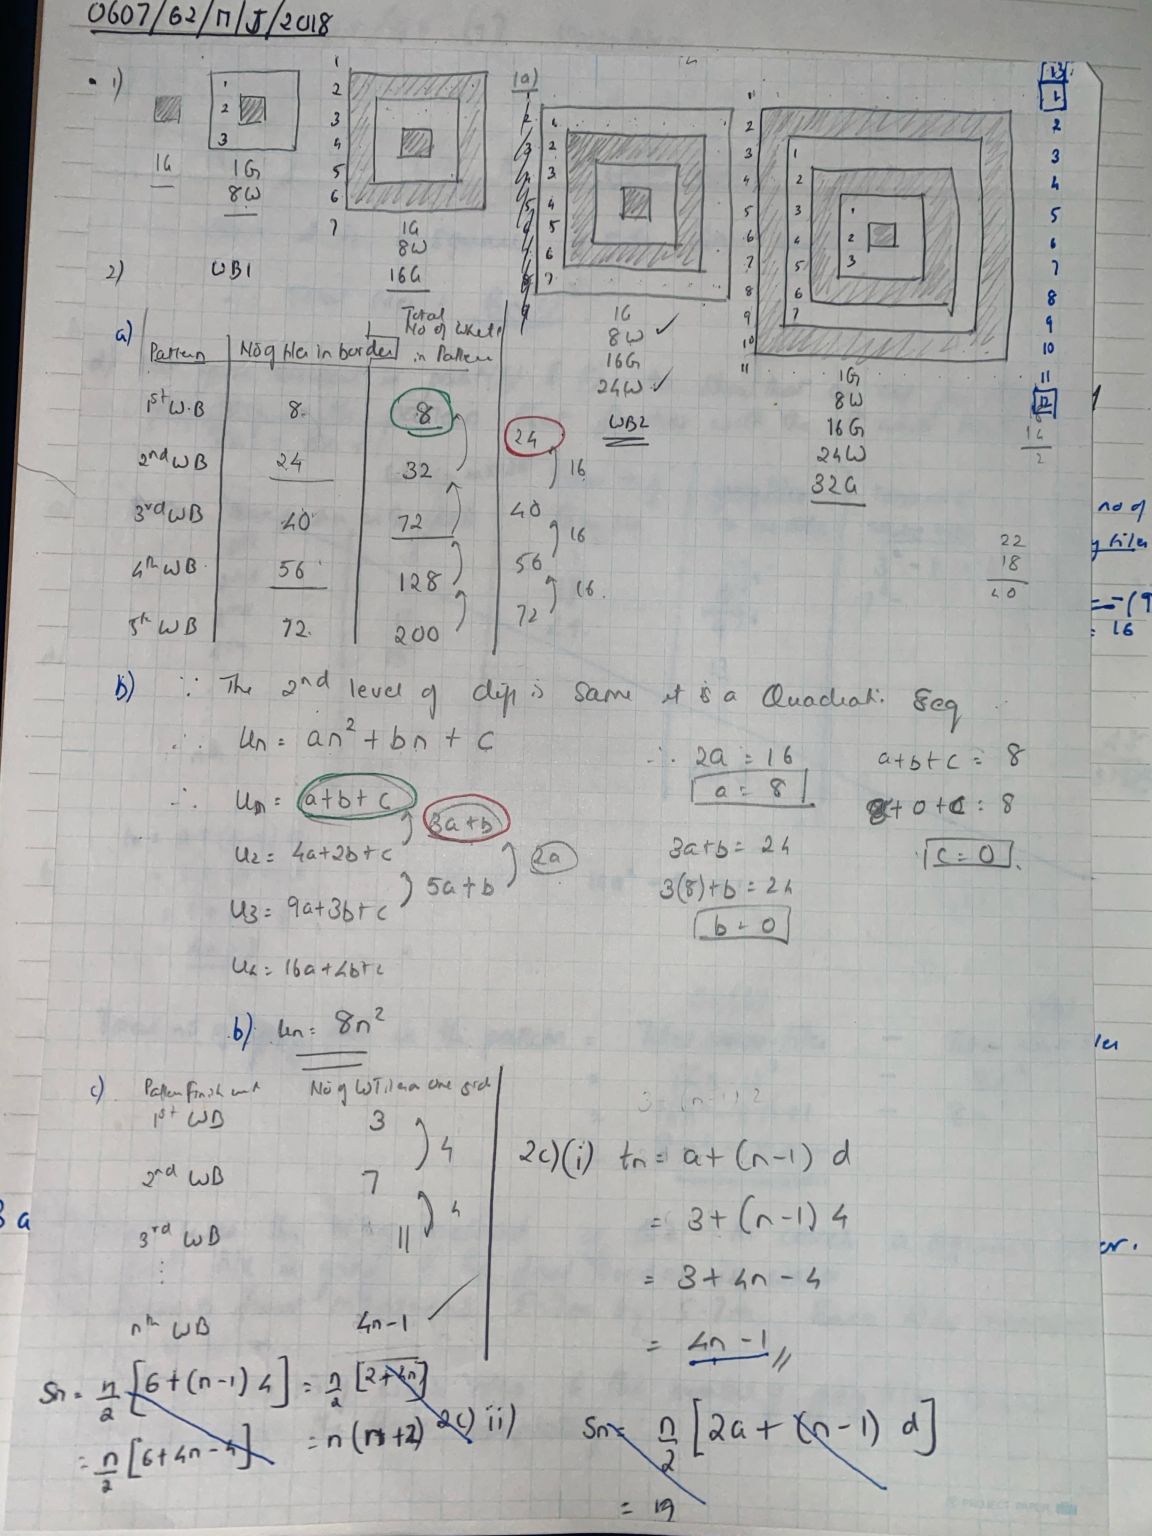 0607/62/M/J/2018
1)
1G
1
2
3
1G
8W
1
2
3
4
5
6
7
1G
8W
16G
(a)
1
2
3
4
5
6
7
1G
8W ✓
16G
24W ✓
WB2
1
2
3
4
5
6
7
8
9
10
11
1
2
3
4
5
6
7
1
2
3
1G
8W
16G
24W
32G
13
1
2
3
4
5
6
7
8
9
10
11
12
2)
WB1
a)
Pattern | No of tiles in border | Total No of white in Pattern
1st W.B 8 8
24
2nd WB 24 32
16
3rd WB 40 72
40
16
4th WB 56 128
56
16
5th WB 72 200
72
22
18
40
no of
= 16
b) ∵ The 2nd level of diff is same it is a Quadrati. Seq
∴ Un = an² + bn + c
∴ 2a = 16
a = 8
a+b+c = 8
8+0+c = 8
c = 0
∴ a+b+c
3a+b
U2 = 4a+2b+c
2a
5a+b
U3 = 9a+3b+c
3a+b = 24
3(8)+b = 24
b = 0
U4 = 16a+4b+c
b) Un = 8n²
c) Pattern finish with No of W Tiles on one side
1st WB 3
4
2nd WB 7
4
3rd WB 11
⋮
nth WB 4n-1
2c)(i) tn = a+(n-1) d
= 3+(n-1) 4
= 3+4n-4
= 4n-1 //
Sn = n/2 [6+(n-1) 4] = n/2 [2+4n]
= n/2 [6+4n-4] = n(n+2)
2c) ii) Sn = n/2 [2a + (n-1) d]
=
PROJECT PAPER